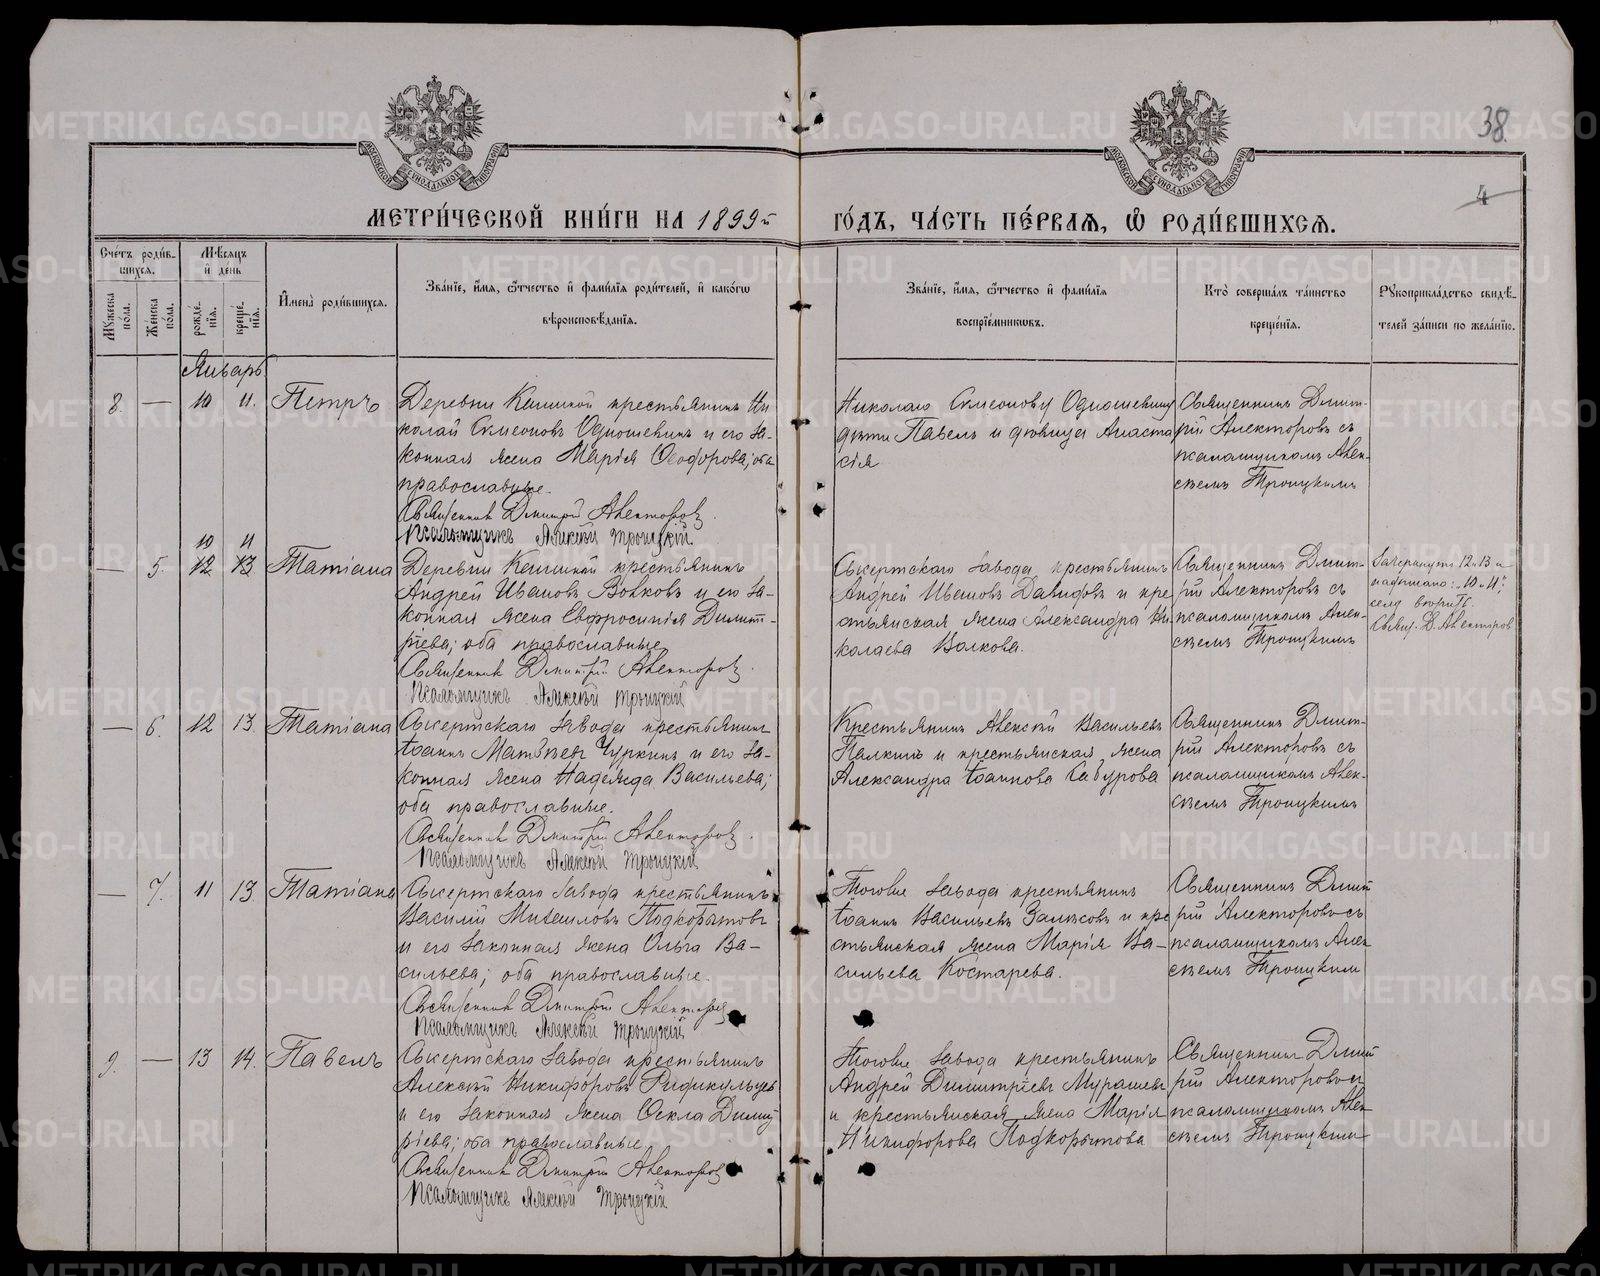 38.
4
МОСКОВСКОЙ СѴНОДАЛЬНОЙ ТИПОГРАФІИ
МОСКОВСКОЙ СѴНОДАЛЬНОЙ ТИПОГРАФІИ
МЕТРИ́ЧЕСКОЙ КНИ́ГИ НА 1899й ГО́ДЪ, ЧА́СТЬ ПЕ́РВАѦ, Ѡ҆ РОДИ́ВШИХСѦ.
Сче́тъ роди́в-
шихсѧ.
Мꙋ́жеска по́ла.
Же́нска по́ла.
Мѣ́сѧцъ
и҆ де́нь
рожде́-
нїѧ.
креще́-
нїѧ.
И҆мена̀ роди́вшихсѧ.
Зва́нїе, и҆́мѧ, ѻ҆́тчество и҆ фами́лїѧ роди́телей, и҆ како́гѡ
вѣроисповѣ́данїѧ.
Зва́нїе, и҆́мѧ, ѻ҆́тчество и҆ фами́лїѧ
воспрїе́мниковъ.
Кто̀ соверша́лъ та́инство
креще́нїѧ.
Рꙋкоприкла́дство свидѣ́-
телей за́писи по жела́нїю.
Январь
8. — 10 11. Петръ
Деревни крестьянинъ Ни
колай Симеоновъ Одношевинъ и его за-
конная жена Марія Ѳеодорова; оба
православные.
Священникъ Димитрій Алекторовъ.
Псаломщикъ Алексѣй Троицкій
Николаю Симеонову
дѣти Павелъ и дѣвица Анаста
сія
Священникъ Димит-
рій Алекторовъ съ
псаломщикомъ Алек-
сѣемъ Троицкимъ
10 11
— 5. 12 13 Татіана
Деревни крестьянинъ
Андрей Ивановъ Волковъ и его за-
конная жена Евфросинія Димит-
ріева; оба православные
Священникъ Димитрій Алекторовъ.
Псаломщикъ Алексѣй Троицкій
Сысертскаго завода крестьянинъ
Андрей Ивановъ Давидовъ и кре
стьянская жена Александра Ни
колаева Волкова.
Священникъ Димит-
рій Алекторовъ съ
псаломщикомъ Алек-
сѣемъ Троицкимъ
Зачеркнуто 12 и 13 и
надписано: „10 и 11“;
Свящ. Д. Алекторов
— 6. 12 13. Татіана
Сысертскаго завода крестьянинъ
Іоаннъ Матвѣевъ Чуркинъ и его за-
конная жена Надежда Васильева;
оба православные.
Священникъ Димитрій Алекторовъ.
Псаломщикъ Алексѣй Троицкій
Крестьянинъ Алексѣй Васильевъ
Палкинъ и крестьянская жена
Александра Іоаннова Сабурова
Священникъ Димит-
рій Алекторовъ съ
псаломщикомъ Алек-
сѣемъ Троицкимъ
— 7. 11 13. Татіана
Сысертскаго завода крестьянинъ
Василій Михаиловъ Подкорытовъ
и его законная жена Ольга Ва-
сильева; оба православные.
Священникъ Димитрій Алекторовъ
Псаломщикъ Алексѣй Троицкій
Тогоже завода крестьянинъ
Іоаннъ Васильевъ и кре
стьянская жена Марія Ва-
сильева Костарева.
Священникъ Димит
рій Алекторовъ съ
псаломщикомъ Алек
сѣемъ Троицким
9. — 13 14. Павелъ
Сысертскаго завода крестьянинъ
Алексѣй Никифоровъ Ридикульцевъ
и его законная жена Ѳекла Димит
ріева; оба православные
Священникъ Димитрій Алекторовъ
Псаломщикъ Алексѣй Троицкій
Тогоже завода крестьянинъ
Андрей Димитріевъ Мурашевъ
и крестьянская жена Марія
Никифорова Подкорытова
Священникъ Димит
рій Алекторовъ съ
псаломщикомъ Алек
сѣемъ Троицким
METRIKI.GASO-URAL.RU